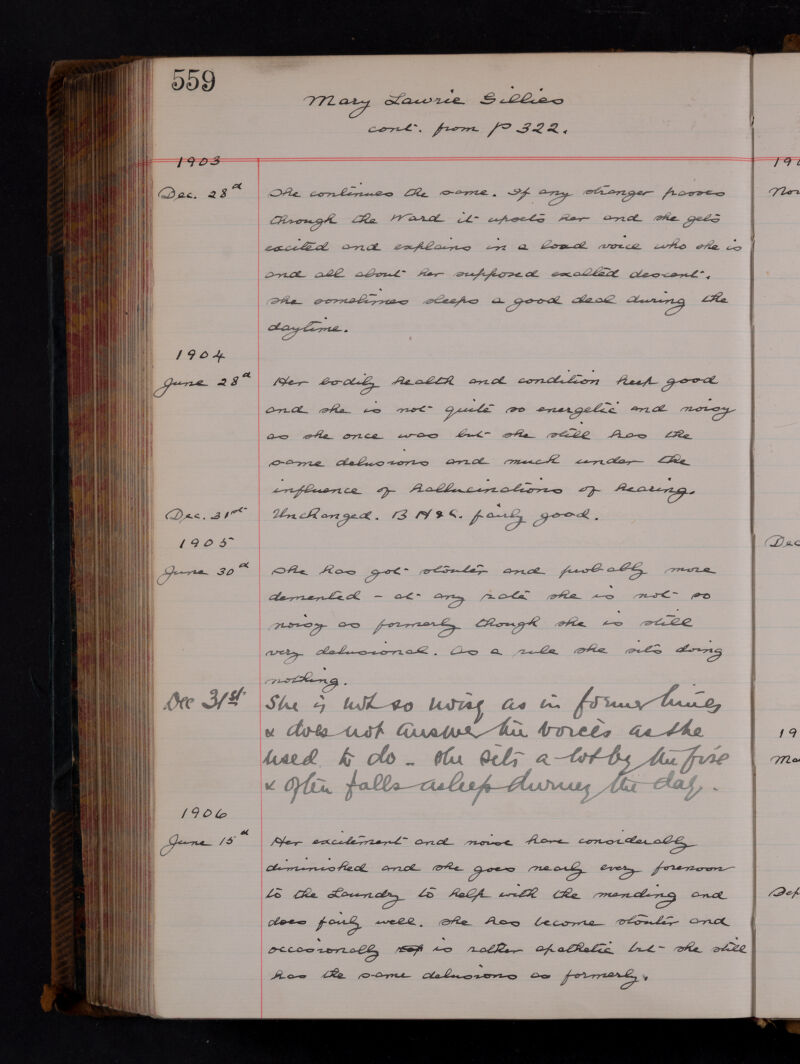 559
Mary Lawrie Gillies
cont. from p 322.
1903
Dec. 28th She continues the same. If any stranger passes
through the Ward it upsets her and she gets
excited and explains in a loud voice who she is
and all about her supposed exalted descent.
She sometimes sleeps a good deal during the
daytime.
1904
June 28th Her bodily health and condition keep good
and she is not quite so energetic and noisy
as she once was but she still has the
same delusions and much under the
influence of hallucinations of hearing.
Dec. 31st Unchanged. B H & C. fairly good.
1905
June 30th She has got stouter and probably more
demented - at any rate she is not so
noisy as formerly though she is still
very delusional. As a rule she sits doing
nothing.
Dec 31st She is not so noisy as in former times
& does not answer the voices as she
used to do - she sits a lot by the fire
& often falls asleep during the day.
1906
June 15th Her excitement and noise have considerably
diminished and she goes nearly every forenoon
to the Laundry to help with the mending and
does fairly well. She has become stouter and
occasionally is rather apathetic but she still
has the same delusions as formerly.
190
Nov
Dec
19
Ma
Sep